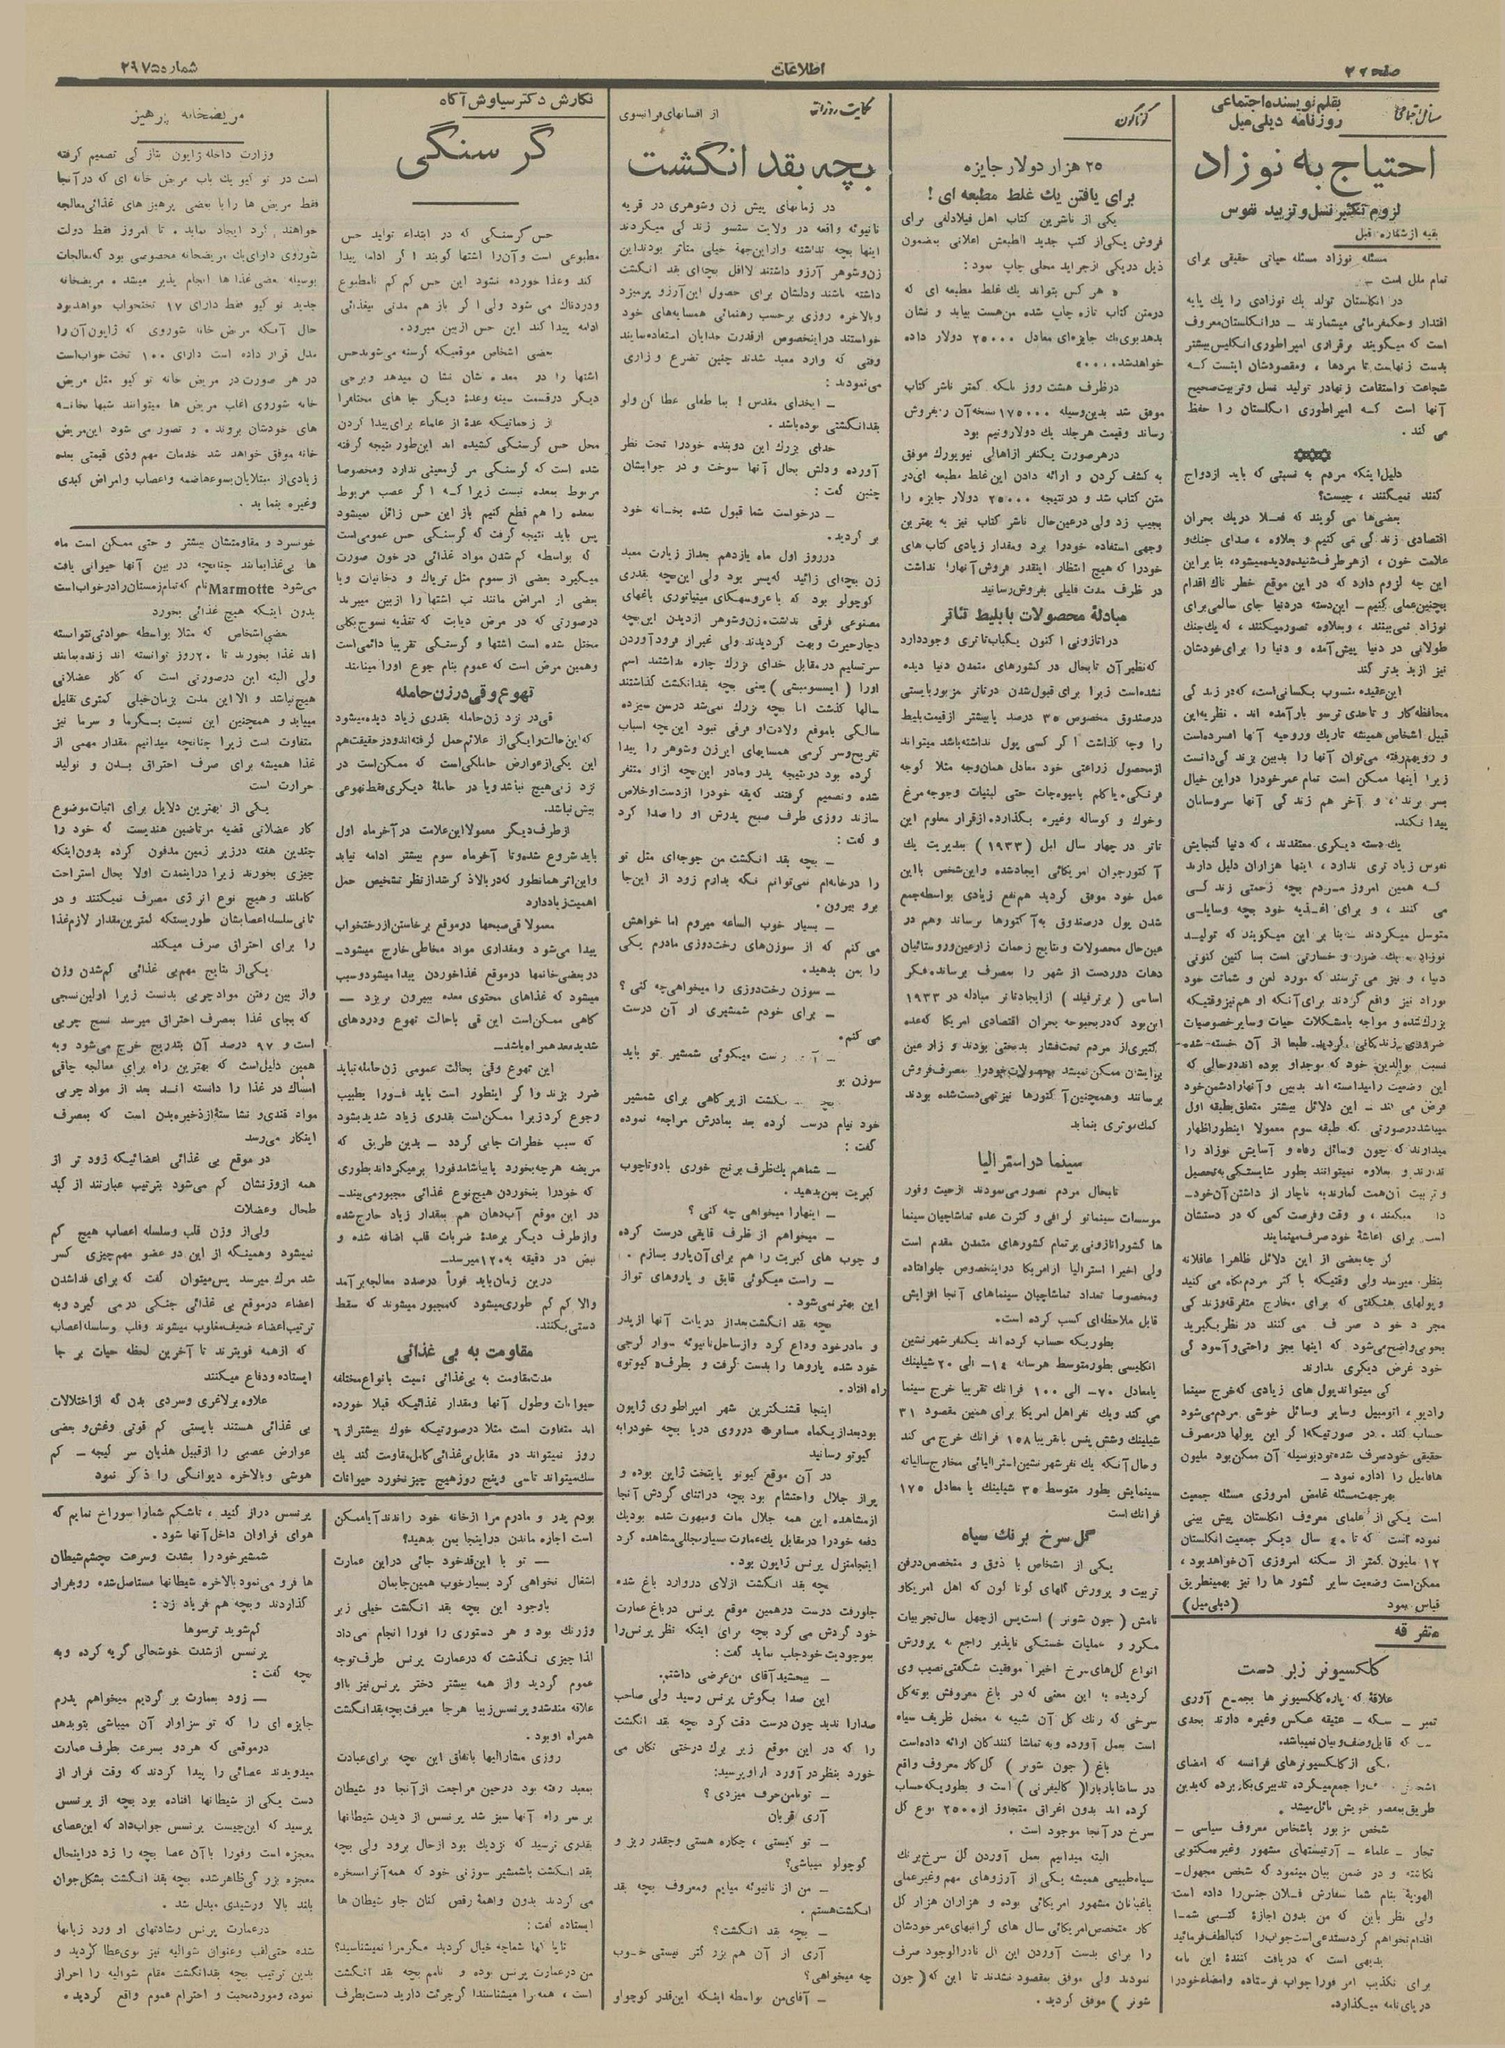 صفحه ۲
اطلاعات
شماره ۲۹۷۵
مسائل اجتماعی
بقلم نویسنده اجتماعی
روزنامه دیلی میل
احتیاج به نوزاد
لزوم تکثیر نسل و تزیید نفوس
بقیه از شماره قبل
مسئله نوزاد مسئله حیاتی حقیقی برای
تمام ملل است
در انگلستان تولد یك نوزادی را یك پایه
اقتدار و حکمفرمائی میشمارند – در انگلستان معروف
است که میگویند برقراری امپراطوری انگلیس بیشتر
بدست زنهاست تا مردها ، ومقصودشان اینست که
شجاعت واستقامت زنهادر تولید نسل و تربیت صحیح
آنها است که امپراطوری انگلستان را حفظ
می کند .
دلیل اینکه مردم به نسبتی که باید ازدواج
کنند نمیکنند ، چیست؟
بعضی‌ها می گویند که فعلا دریك بحران
اقتصادی زندگی می کنیم و بعلاوه ، صدای جنك و
علامت خون ، از هر طرف شنیده و دیده میشود، بنا براین
این چه لزوم دارد که در این موقع خطر ناك اقدام
بچنین عملی کنیم – این دسته در دنیا جای سالمی برای
نوزاد نمی بینند ، وبعلاوه تصور میکنند ، که یك جنك
طولانی در دنیا پیش آمده و دنیا را برای خودشان
نیز از بد بدتر کند
این عقیده منسوب بکسانی است، که در زندگی
محافظه کار و تاحدی ترسو بار آمده اند . نظریه این
قبیل اشخاص همیشه تاریك وروحیه آنها افسرده است
و رویهمرفته می توان آنها را بدبین بزندگی دانست
زیرا اینها ممکن است تمام عمر خودرا دراین خیال
بسر برند ، و آخر هم زندگی آنها سروسامان
پیدا نکند.
یك دسته دیگری معتقدند ، که دنیا گنجایش
نفوس زیاد تری ندارد ، اینها هزاران دلیل دارند
که همین امروز مردم بچه زحمتی زندگی
می کنند ، و برای اغذیه خود بچه وسایلی
متوسل میگردند – بنا بر این میگویند که تولید
نوزاد به یك ضرر و خسارتی است بسا کنین کنونی
دنیا ، و نیز می ترسند که مورد لعن و شماتت خود
نوزاد نیز واقع گردند برای آنکه او هم نیز وقتیکه
بزرك شده و مواجه با مشکلات حیات وسایر خصوصیات
ضروری زندگانی گردید. طبعا از آن خسته شده
نسبت بوالدین خود که موجد او بوده اند در حالی که
این وضعیت را میدانسته اند بدبین و آنها را دشمن خود
فرض می کند – این دلائل بیشتر متعلق بطبقه اول
میباشد در صورتی که طبقه سوم معمولا اینطور اظهار
میدارند که چون وسائل رفاه و آسایش نوزاد را
ندارند و بعلاوه نمیتوانند بطور شایستگی به تحصیل
و تربیت آن همت گمارند به ناچار از داشتن آن خود
میکنند ، و وقت وفرصت کمی که در دستشان
است برای اعاشهٔ خود صرف مینمایند
گر چه بعضی از این دلائل ظاهرا عاقلانه
بنظر میرسد ولی وقتیکه با کثر مردم نگاه می کنید
و پولهای هنگفتی که برای مخارج متفرقه زندگی
مجرد خود صرف می کنند در نظر بگیرید
بخوبی واضح می‌شود که اینها بجز راحتی و آسودگی
خود غرض دیگری ندارند
کی میتواند پول های زیادی که خرج سینما
رادیو ، اتومبیل وسایر وسائل خوشی مردم می‌شود
حساب کند . در صورتیکه اگر این پولها در مصرف
حقیقی خود صرف شده بود بوسیله آن ممکن بود ملیون
ها فامیل را اداره نمود –
بهر جهت مسئله غامض امروزی مسئله جمعیت
است یکی از علمای معروف انگلستان پیش بینی
نموده است که تا ٤۰ سال دیگر جمعیت انگلستان
۱۲ ملیون کمتر از سکنه امروزی آن خواهد بود ،
ممکن است وضعیت سایر کشور ها را نیز بهمین طریق
قیاس نمود (دیلی میل)
متفرقه
کلکسیونر زبر دست
علاقهٔ که پاره کلکسیونر ها بجمع آوری
تمبر – سکه – عتیقه عکس وغیره دارند بحدی
که قابل وصف و بیان نمیباشد.
یکی از کلکسیونرهای فرانسه که امضای
را جمع میکرده تدبیری بکار برده که بدین
طریق بمقصود خویش نائل میشد .
شخص مزبور باشخاص معروف سیاسی –
تجار – علماء – آرتیستهای مشهور وغیره مکتوبی
نگاشته و در ضمن بیان مینمود که شخص مجهول
الهویهٔ بنام شما سفارش فلان جنس را داده است
ولی نظر باین که من بدون اجازهٔ کتبی شما
اقدام نخواهم کرد مستدعی است جواب را کتبا لطف فرمائید
بدیهی است که دریافت کنندهٔ این نامه
برای تکذیب امر فورا جواب فرستاده وامضاء خودرا
در پای نامه میگذارد.
گوناگون
۲۵ هزار دولار جایزه
برای یافتن یك غلط مطبعه ای !
یکی از ناشرین کتاب اهل فیلادلفی برای
فروش یکی از کتب جدید الطبعش اعلانی بمضمون
ذیل در یکی از جراید محلی چاپ نمود :
« هر کس بتواند یك غلط مطبعه ای که
در متن کتاب تازه چاپ شده من هست بیابد و نشان
بدهد بوی یك جایزه ای معادل ۲۵۰۰۰ دولار داده
خواهد شد....»
در ظرف هشت روز بلکه کمتر ناشر کتاب
موفق شد بدین وسیله ۱۷۵۰۰۰ نسخه آن را بفروش
رساند وقیمت هر جلد یك دولار و نیم بود
در هر صورت یکنفر از اهالی نیویورك موفق
به کشف کردن و ارائه دادن این غلط مطبعه ای در
متن کتاب شد و در نتیجه ۲۵۰۰۰ دولار جایزه را
بجیب زد ولی در عین حال ناشر کتاب نیز به بهترین
وجهی استفاده خودرا برد ومقدار زیادی کتاب های
خودرا که هیچ انتظار اینقدر فروش آنها را نداشت
در ظرف مدت قلیلی بفروش رسانید
مبادلهٔ محصولات با بلیط تئاتر
در اتازونی اکنون یکباب تئاتری وجود دارد
که نظیر آن تا بحال در کشورهای متمدن دنیا دیده
نشده است زیرا برای قبول شدن در تئاتر مزبور بایستی
در صندوق مخصوص ۳۵ درصد یا بیشتر از قیمت بلیط
را وجه گذاشت اگر کسی پول نداشته باشد میتواند
از محصول زراعتی خود معادل همان وجه مثلا گوجه
فرنگی، یا کلم یا میوجات حتی لبنیات وجوجه مرغ
وخوك و گوساله وغیره بگذارد. از قرار معلوم این
تئاتر در چهار سال قبل (۱۹۳۳) بمدیریت یك
آکتور جوان امریکائی ایجاد شده واین شخص با این
عمل خود موفق گردید هم نفع زیادی بواسطه جمع
شدن پول در صندوق به آکتورها برساند وهم در
عین حال محصولات و نتایج زحمات زارعین وروستائیان
دهات دوردست از شهر را بمصرف برساند، فکر
اساسی ( برترفیلد ) از ایجاد تئاتر مبادله در ۱۹۳۳
این بود که در بحبوحه بحران اقتصادی امریکا که عده
کثیری از مردم تحت فشار بدبختی بودند و زارعین
برایشان ممکن نمیشد محصولات خود را بمصرف فروش
برسانند وهمچنین آکتورها نیز تهی دست شده بودند
کمك موثری بنماید
سینما در استرالیا
تا بحال مردم تصور می نمودند از حیث وفور
موسسات سینماتو گرافی و کثرت عده تماشاچیان سینما
ها کشور اتازونی بر تمام کشورهای متمدن مقدم است
ولی اخیرا استرالیا از امریکا در اینخصوص جلو افتاده
ومخصوصا تعداد تماشاچیان سینماهای آنجا افزایش
قابل ملاحظه‌ای کسب کرده است.
بطوریکه حساب کرده اند یکنفر شهر نشین
انگلیسی بطور متوسط هر سانه ۱٤– الی ۲۰ شیلینك
یا معادل ۷۰– الی ۱۰۰ فرانك تقریبا خرج سینما
می کند ویك نفر اهل امریکا برای همین مقصود ۳۱
شیلینك وشش پنس یا تقریبا ۱۵۸ فرانك خرج می کند
وحال آنکه یك نفر شهر نشین استرالیائی مخارج سالیانه
سینمایش بطور متوسط ۳۵ شیلینك یا معادل ۱۷۵
فرانك است
گل سرخ برنك سیاه
یکی از اشخاص با ذوق و متخصص در فن
تربیت و پرورش گلهای گونا گون که اهل امریکا و
نامش ( جون شونر ) است پس از چهل سال تجربیات
مکرر و عملیات خستگی ناپذیر راجع به پرورش
انواع گل‌های سرخ اخیرا موفقیت شگفتی نصیب وی
گردیده به این معنی که در باغ معروفش بوته گل
سرخی که رنك گل آن شبیه به مخمل ظریف سیاه
است بعمل آورده وبه تماشا کنندگان ارائه داده است
باغ ( جون شونر ) گل کار معروف واقع
در سانتا باربارا ( کالیفرنی ) است و بطوریکه حساب
کرده اند بدون اغراق متجاوز از ۲۵۰۰ نوع گل
سرخ در آنجا موجود است .
البته میدانیم بعمل آوردن گل سرخ برنك
سیاه طبیعی همیشه یکی از آرزوهای مهم وغیر عملی
باغبانان مشهور امریکائی بوده و هزاران هزار گل
کار متخصص امریکائی سال های گرانبهای عمر خودشان
را برای بدست آوردن این گل نادرالوجود صرف
نمودند ولی موفق بمقصود نشدند تا این که ( جون
شونر ) موفق گردید .
حکایت روزانه
از افسانهای فرانسوی
بچه بقد انگشت
در زمانهای پیش زن وشوهری در قریه
نانیوئه واقعه در ولایت ستسو زندگی میکردند
اینها بچه نداشته واز این جهة خیلی متأثر بودند این
زن و شوهر آرزو داشتند لااقل بچه‌ای بقد انگشت
داشته باشند ودلشان برای حصول این آرزو پرمیزد
و بالاخره روزی بر حسب رهنمائی همسایه‌های خود
خواستند در اینخصوص از قدرت خدایان استفاده نمایند
وقتی که وارد معبد شدند چنین تضرع و زاری
می نمودند :
– ایخدای مقدس ! بما طفلی عطا کن ولو
بقد انگشتی بوده باشد .
خدای بزرك این دو بنده خودرا تحت نظر
آورده ودلش بحال آنها سوخت و در جوابشان
چنین گفت :
– درخواست شما قبول شده بخانه خود
بر گردید.
در روز اول ماه یازدهم بعد از زیارت معبد
زن بچه‌ای زائید که پسر بود ولی این بچه بقدری
کوچولو بود که با عروسکهای مینیاتوری باغهای
مصنوعی فرقی نداشت. زن و شوهر از دیدن این بچه
دچار حیرت و بهت گردیدند ولی غیر از فرود آوردن
سر تسلیم در مقابل خدای بزرك چاره نداشتند اسم
اورا ( ایسسومبشی ) یعنی بچه بقد انگشت گذاشتند
سالها گذشت اما بچه بزرك نمی‌شد در سن سیزده
سالگی با موقع ولادت او فرقی نبود این بچه اسباب
تفریح و سر گرمی همسایهای این زن وشوهر را پیدا
کرده بود در نتیجه پدر ومادر این بچه از او متنفر
شده و تصمیم گرفتند که یقه خودرا از دست او خلاص
سازند روزی طرف صبح پدرش او را صدا کرد
و گفت :
– بچه بقد انگشت من جوجه‌ای مثل تو
را در خانه‌ام نمی‌توانم نگه بدارم زود از این‌جا
برو بیرون.
– بسیار خوب الساعه میروم اما خواهش
می کنم که از سوزن‌های رخت دوزی مادرم یکی
را بمن بدهید.
– سوزن رخت دوزی را میخواهی چه کنی ؟
– برای خودم شمشیری از آن درست
می کنم.
راست میگوئی شمشیر تو باید
سوزن
بچه انگشت از پر کاهی برای شمشیر
خود نیام درست کرده بعد بمادرش مراجعه نموده
گفت :
– شما هم یك ظرف برنج خوری با دوتا چوب
کبریت بمن بدهید .
– اینهارا میخواهی چه کنی ؟
– میخواهم از ظرف قایقی درست کرده
و چوب های کبریت را هم برای آن پارو بسازم .
– راست میگوئی قایق و پاروهای تو از
این بهتر نمی‌شود .
بچه بقد انگشت بعد از دریافت آنها از پدر
و مادر خود وداع کرد و از ساحل نانیوئه سوار کرجی
خود شده پاروها را بدست گرفت و بطرف « کیوتو »
راه افتاد .
اینجا قشنگترین شهر امپراطوری ژاپون
بود بعد از یکماه مسافرت در روی دریا بچه خود را به
کیوتو رسانید
در آن موقع کیوتو پایتخت ژاپن بوده و
پر از جلال واحتشام بود بچه در اثنای گردش آنجا
از مشاهده این همه جلال مات ومبهوت شده بود یك
دفعه خود را در مقابل یك عمارت بسیار مجللی مشاهده کرد
اینجا منزل پرنس ژاپون بود.
بچه بقد انگشت از لای دروارد باغ شده
جلو رفت درست در همین موقع پرنس در باغ عمارت
خود گردش می کرد بچه برای اینکه نظر پرنس را
بموجودیت خود جلب نماید گفت :
– ببخشید آقای من عرضی داشتم.
این صدا بگوش پرنس رسید ولی صاحب
صدارا ندید چون درست دقت کرد بچه بقد انگشت
را که در این موقع زیر برك درختی تکان می
خورد بنظر در آورد از او پرسید:
– تو با من حرف میزدی ؟
– آری قربان
– تو کیستی ، چکاره هستی و چقدر ریز و
کوچولو میباشی؟
– من از نانیوئه میایم ومعروف ببچه بقد
انگشت هستم .
– بچه بقد انگشت؟
آری از آن هم بزرگتر نیستی خوب
چه میخواهی؟
– آقای من بواسطه اینکه این قدر کوچولو
بودم پدر و مادرم مرا از خانه خود راندند آیا ممکن
است اجازه ماندن در اینجا بمن بدهید؟
— تو با این قد خود جائی در این عمارت
اشغال نخواهی کرد بسیار خوب همین جا بمان
با وجود این بچه بقد انگشت خیلی زبر
وزرنك بود و هر دستوری را فورا انجام می‌داد
لذا چیزی نگذشت که در عمارت پرنس طرف توجه
عموم گردید واز همه بیشتر دختر پرنس نیز با او
علاقه مند شد و پرنسس زیبا هر جا میرفت بچه بقد انگشت
همراه او بود.
روزی مشارالیها باتفاق این بچه برای عبادت
بمعبد رفته بود در حین مراجعت از آنجا دو شیطان
بر سر راه آنها سبز شد پرنسس از دیدن شیطانها
بقدری ترسید که نزدیك بود از حال برود ولی بچه
بقد انگشت با شمشیر سوزنی خود که همه آنرا مسخره
می کردند بدون واهمهٔ رقص کنان جلو شیطان ها
ایستاده گفت :
مرا نمیشناسید؟
من در عمارت پرنس بوده و نامم بچه بقد انگشت
است ، همه را میشناسند اگر جرئت دارید دست بطرف
پرنسس دراز کنید ، تا شکم شمارا سوراخ نمایم که
هوای فراوان داخل آنها شود .
شمشیر خودرا بشدت وسرعت بچشم شیطان
ها فرو می‌نمود بالاخره شیطانها مستاصل شده رو بفرار
گذاردند وبچه هم فریاد زد :
گم شوید ترسوها
پرنسس از شدت خوشحالی گریه کرده وبه
بچه گفت :
— زود بعمارت بر گردیم میخواهم پدرم
جایزه ای را که تو سزاوار آن میباشی بتو بدهد
در موقعی که هردو بسرعت بطرف عمارت
میدویدند عصائی را پیدا کردند که وقت فرار از
دست یکی از شیطانها افتاده بود بچه از پرنسس
پرسید که این چیست پرنسس جواب داد که این عصای
معجزه است وفورا با آن عصا بچه را زد در اینحال
معجزه بزرگی ظاهر شده بچه بقد انگشت بشکل جوان
بلند بالا ورشیدی مبدل شد .
در عمارت پرنس رشادتهای او ورد زبانها
شده حتی لقب وعنوان شوالیه نیز بوی عطا گردید و
بدین ترتیب بچه بقد انگشت مقام شوالیه را احراز
نمود، ومورد محبت و احترام عموم واقع گردید .
نگارش دکتر سیاوش آگاه
گرسنگی
حس گرسنگی که در ابتداء تولید حس
مطبوعی است و آن را اشتها گویند اگر ادامه پیدا
کند وغذا خورده نشود این حس کم کم نامطبوع
ودردناك می شود ولی اگر باز هم مدتی بیغذائی
ادامه پیدا کند این حس از بین میرود.
بعضی اشخاص موقعیکه گرسنه می‌شوند حس
اشتها را در معده شان نشان میدهد وبرخی
دیگر در قسمت سینه وعدهٔ دیگر جا های مختلف را
از زحماتیکه عدهٔ از علماء برای پیدا کردن
محل حس گرسنگی کشیده اند این‌طور نتیجه گرفته
شده است که گرسنگی مرکز معینی ندارد ومخصوصا
مربوط بمعده نیست زیرا که اگر عصب مربوط
بمعده را هم قطع کنیم باز این حس زائل نمیشود
پس باید نتیجه گرفت که گرسنگی حس عمومی است
که بواسطه کم شدن مواد غذائی در خون صورت
میگیرد بعضی از سموم مثل تریاك و دخانیات ویا
بعضی از امراض مانند تب اشتها را از بین میبرند
درصورتی که در مرض دیابت که تغذیه نسوج بکلی
مختل شده است اشتها و گرسنگی تقریبا دائمی است
وهمین مرض است که عموم بنام جوع اورا مینامند
تهوع وقی در زن حامله
قی در نزد زن حامله بقدری زیاد دیده میشود
که این حالت را یکی از علائم حمل گرفته اند و در حقیقت هم
این یکی از عوارض حاملگی است که ممکن است در
نزد زنی هیچ نباشد ویا در حاملهٔ دیگری فقط تهوعی
بیش نباشد.
از طرف دیگر معمولا این علامت در آخر ماه اول
باید شروع شده و تا آخر ماه سوم بیشتر ادامه نیابد
و این اثر همانطور که در بالا ذکر شد از نظر تشخیص حمل
اهمیت زیاد دارد
معمولا قی صبحها در موقع برخاستن از رختخواب
پیدا می‌شود ومقداری مواد مخاطی خارج میشود–
در بعضی خانمها در موقع غذا خوردن پیدا میشود وسبب
میشود که غذاهای محتوی معده ببیرون بریزد —
گاهی ممکن است این قی با حالت تهوع ودردهای
شدید معده همراه باشد—
این تهوع وقی بحالت عمومی زن حامله نباید
ضرر بزند وا گر اینطور است باید فورا بطبیب
رجوع کرد زیرا ممکن است بقدری زیاد شدید بشود
که سبب خطرات جانی گردد – بدین طریق که
مریضه هر چه بخورد یا بیاشامد فورا بر میگرداند بطوری
که خودرا بنخوردن هیچ نوع غذائی مجبور می‌بیند–
در این موقع آب دهان هم بمقدار زیاد خارج شده
و از طرف دیگر بر عدهٔ ضربات قلب اضافه شده و
نبض در دقیقه به ۱۲۰ میرسد–
در این زمان باید فوراً درصدد معالجه برآمد
والا کم کم طوری میشود که مجبور میشوند که سقط
دستی بکنند.
مقاومت به بی غذائی
مدت مقاومت به بی‌غذائی نسبت بانواع مختلفه
حیوانات وطول آنها ومقدار غذائیکه قبلا خورده
اند متفاوت است مثلا در صورتیکه خوك بیشتر از ٦
روز نمیتواند در مقابل بی‌غذائی کامل مقاومت کند یك
سك میتواند تا سی وپنج روز هیچ چیز نخورد حیوانات
خونسرد و مقاومتشان بیشتر و حتی ممکن است ماه
ها بی غذا بمانند چنانچه در بین آنها حیوانی یافت
می‌شود Marmotte نام که تمام زمستان را در خواب است
بدون اینکه هیچ غذائی بخورد
بعضی اشخاص که مثلا بواسطه حوادثی نتوانسته
اند غذا بخورند تا ۲۰ روز توانسته اند زنده بمانند
ولی البته این در صورتی است که کار عضلانی
هیچ نباشد و الا این مدت بزمان خیلی کمتری تقلیل
مییابد و همچنین این نسبت بگرما و سرما نیز
متفاوت است زیرا چنانچه میدانیم مقدار مهمی از
غذا همیشه برای صرف احتراق بدن و تولید
حرارت است
یکی از بهترین دلایل برای اثبات موضوع
کار عضلانی قضیه مرتاضین هندیست که خود را
چندین هفته در زیر زمین مدفون کرده بدون اینکه
چیزی بخورند زیرا در اینمدت اولا بحال استراحت
کاملند و هیچ نوع انرژی مصرف نمیکنند و در
ثانی سلسله اعصابشان طوریستکه کمترین مقدار لازم غذا
را برای احتراق صرف میکند
یکی از نتایج مهم بی غذائی کم شدن وزن
واز بین رفتن مواد چربی بدنست زیرا اولین نسجی
که بجای غذا بمصرف احتراق میرسد نسج چربی
است و ۹۷ درصد آن بتدریج خرج می‌شود وبه
همین دلیل است که بهترین راه برای معالجه چاقی
امساك در غذا را دانسته اند بعد از مواد چربی
مواد قندی و نشاستهٔ از ذخیره بدن است که بمصرف
اینکار می رسد
در موقع بی غذائی اعضائیکه زود تر از
همه از وزنشان کم می‌شود بترتیب عبارتند از کبد
طحال وعضلات
ولی از وزن قلب وسلسله اعصاب هیچ کم
نمیشود وهمینکه از این دو عضو مهم چیزی کسر
شد مرك میرسد پس میتوان گفت که برای فدا شدن
اعضاء در موقع بی غذائی جنگی در می گیرد وبه
ترتیب اعضاء ضعیف مغلوب میشوند وقلب وسلسله اعصاب
که از همه قویترند تا آخرین لحظه حیات بر جا
ایستاده ودفاع میکنند
علاوه بر لاغری وسردی بدن که از اختلالات
بی غذائی هستند بایستی کم قوتی وغش و بعضی
عوارض عصبی را از قبیل هذیان سر گیجه – کم
هوشی وبالاخره دیوانگی را ذکر نمود
مریضخانه پرهیز
وزارت داخله ژاپون بتازگی تصمیم گرفته
است در تو کیو یك باب مریض خانه ای که در آنجا
فقط مریض ها را با بعضی پرهیز های غذائی معالجه
خواهند کرد ایجاد نماید . تا امروز فقط دولت
شوروی دارای یك مریضخانه مخصوصی بود که معالجات
بوسیله بعضی غذا ها انجام پذیر میشد . مریضخانه
جدید تو کیو فقط دارای ۱۷ تختخواب خواهد بود
حال آنکه مریض خانه شوروی که ژاپون آن را
مدل قرار داده است دارای ۱۰۰ تخت خواب است
در هر صورت در مریض خانه تو کیو مثل مریض
خانه شوروی اغلب مریض ها میتوانند شبها بخانه
های خودشان بروند . و تصور می شود این مریض
خانه موفق خواهد شد خدمات مهم وذی قیمتی بعده
زیادی از مبتلایان بسوء هاضمه واعصاب وامراض کبدی
وغیره بنماید .